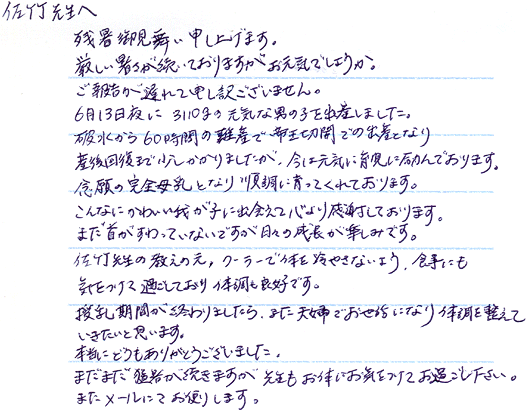 佐竹先生へ
残暑御見舞い申し上げます。
厳しい暑さが続いておりますがお元気でしょうか。
ご報告が遅れて申し訳ございません。
6月13日夜に 3110gの元気な男の子を出産しました。
破水から60時間の難産で帝王切開での出産となり
産後回復まで少しかかりましたが、今は元気に育児に励んでおります。
念願の完全母乳となり順調に育ってくれております。
こんなにかわいい我が子に出会えて心より感謝しております。
まだ首がすわっていないですが日々の成長が楽しみです。
佐竹先生の教えの元、クーラーで体を冷やさないよう、食事にも
気をつけて過ごしており体調も良好です。
授乳期間が終わりましたら、また夫婦でお世話になり体調を整えて
いきたいと思います。
本当にどうもありがとうございました。
まだまだ猛暑が続きますが先生もお体にお気をつけてお過ごし下さい。
またメールにてお便りします。